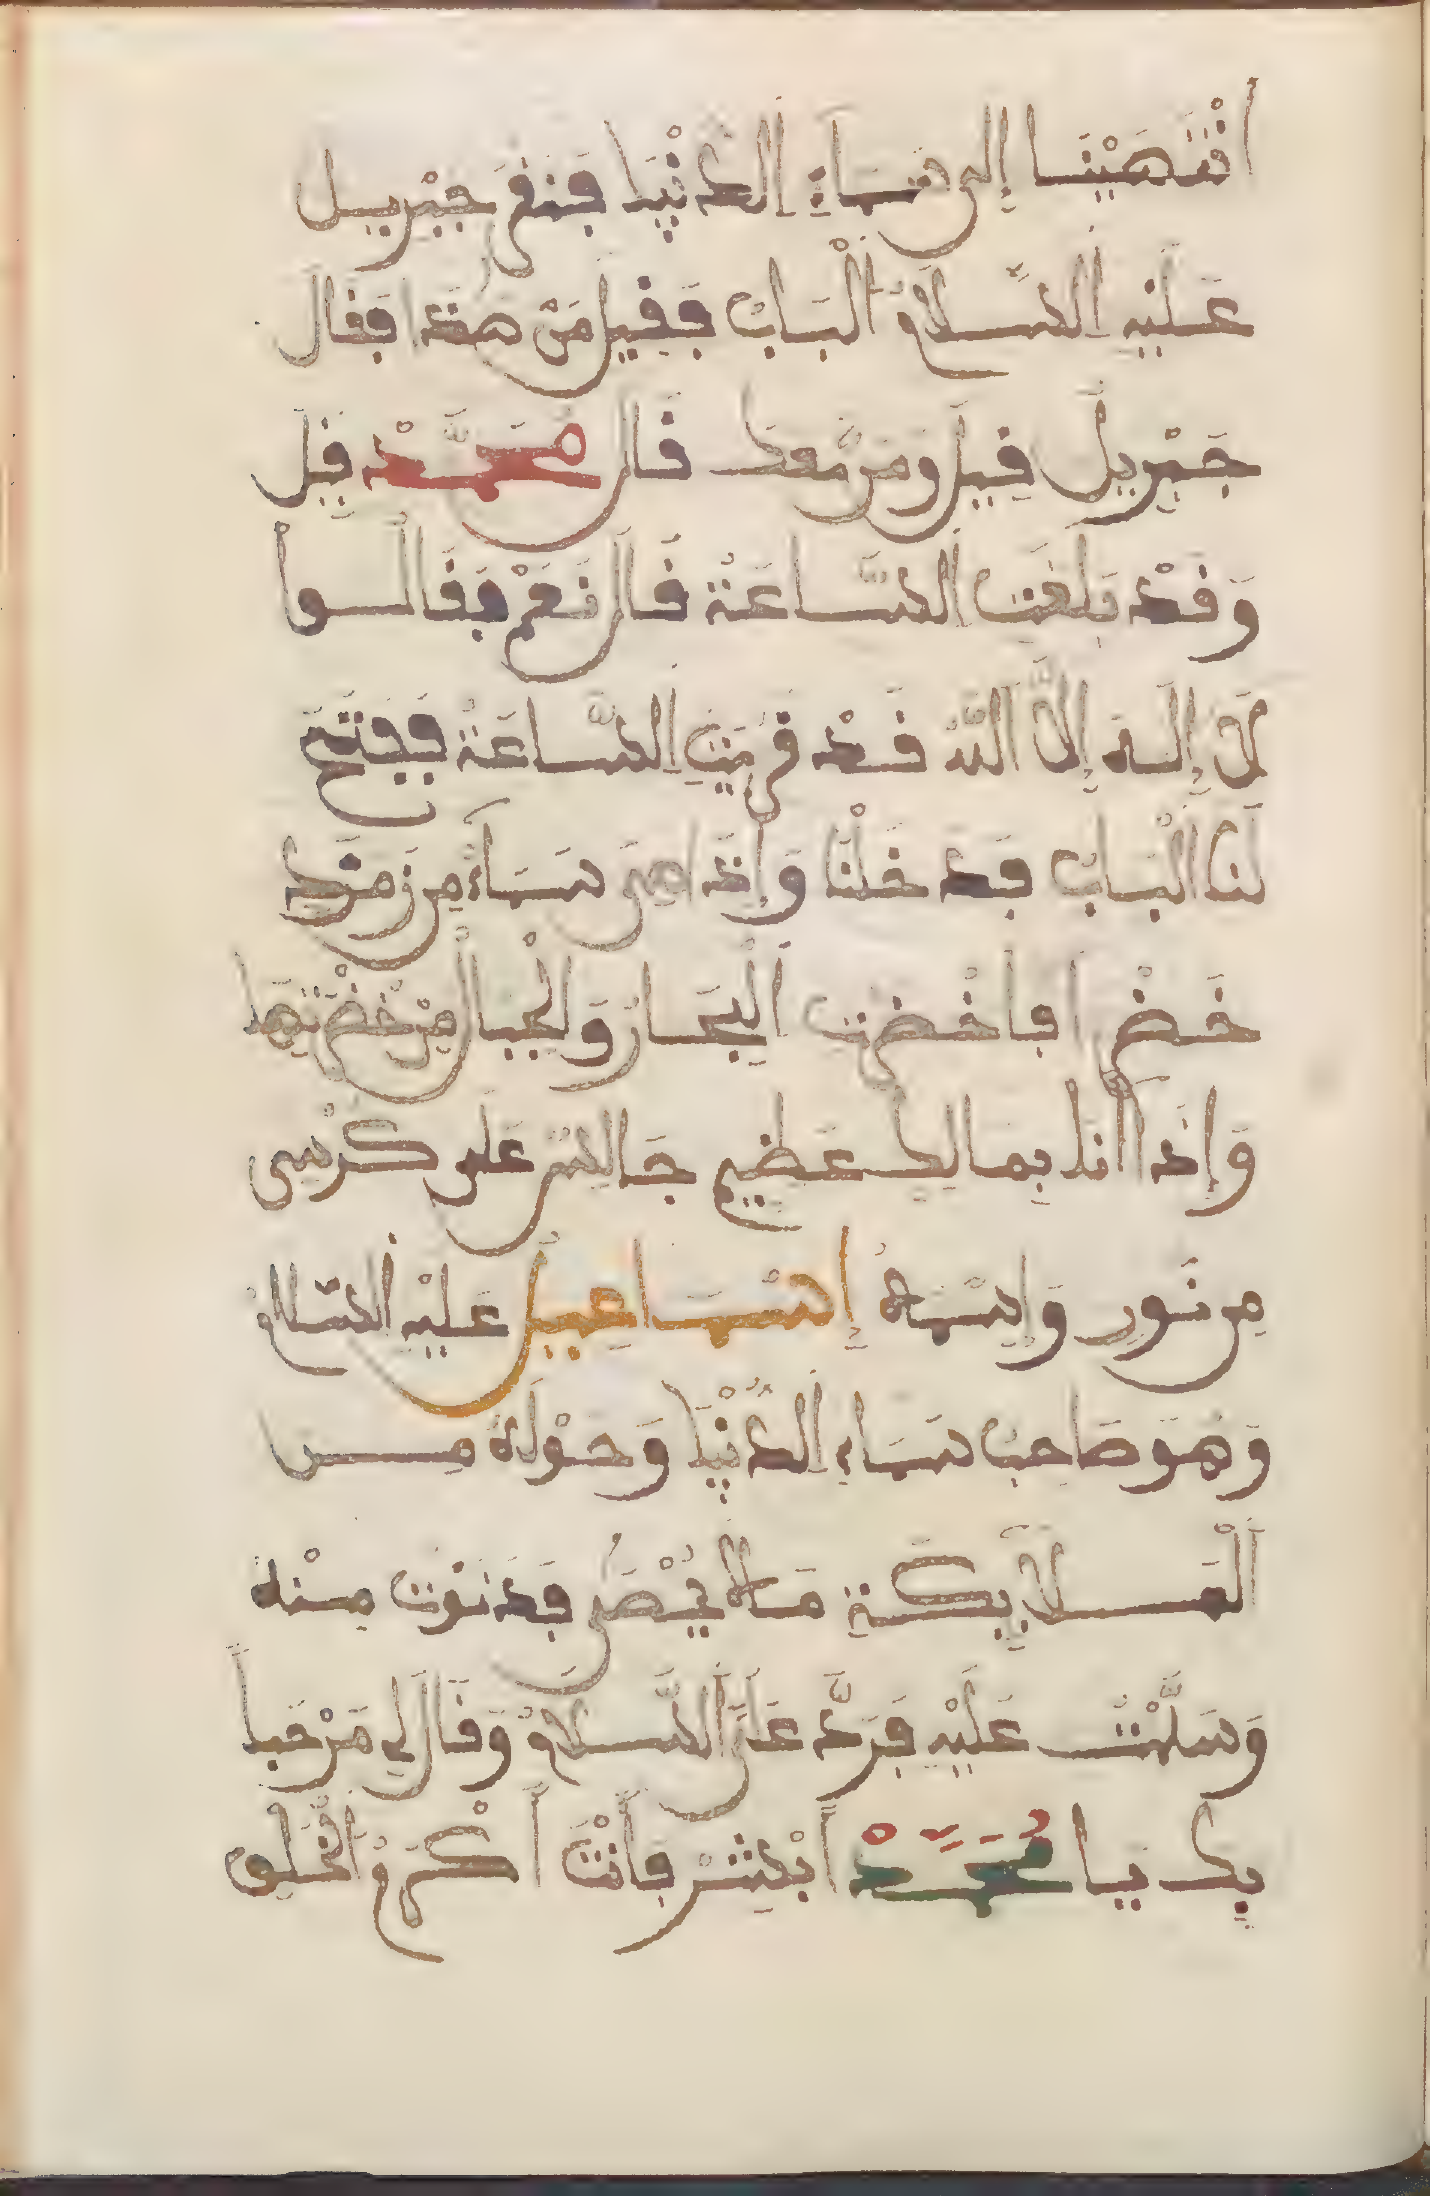 اَنْتَهَيْنَا إِلى سَمَاءِ الدُّنْيَا فَنَقَرَ جِبْرِيلُ
عَلَيْهِ السَّلَامُ الْبَابَ فَقِيلَ مَنْ هَذَا فَقَالَ
جِبْرِيلُ قِيلَ وَمَنْ مَعَكَ قَالَ مُحَمَّدْ قِيلَ
وَقَدْ بَلَغَتِ السَّاعَةُ قَالَ نَعَمْ فَقَالُوا
لَا إِلَهَ إِلَّا اللَّهُ قَدْ قَرُبَتِ السَّاعَةُ فَفَتَحَ
لَنَا الْبَابَ فَدَخَلْنَا وَإِذَا هِيَ سَمَاءٌ مِن زُمُرُّدٍ
خَضْرَا فَاخْضَرَّتِ الْبِحَارُ وَالْجِبَالُ مِنْ خُضْرَتِهَا
وَإِذَا أَنَا بِمَالِكٍ عَظِيمٍ جَالِسٍ عَلَى كُرْسِي
مِن نُورٍ وَاسْمُهُ إِسْمَاعِيلُ عَلَيْهِ السَّلَامُ
وَهُوَ صَاحِبُ سَمَاءِ الدُّنْيَا وَحَوْلَهُ مِنَ
الْمَلَائِكَةِ مَا لَا يُحْصَى فَدَنَوْتُ مِنْهُ
وَسَلَّمْتُ عَلَيْهِ فَرَدَّ عَلَيَّ السَّلَامَ وَقَالَ لِي مَرْحَباً
بِكَ يَا مُحَمَّدْ أَبْشِرْ فَأَنْتَ أَكْرَمُ الْخَلْقِ